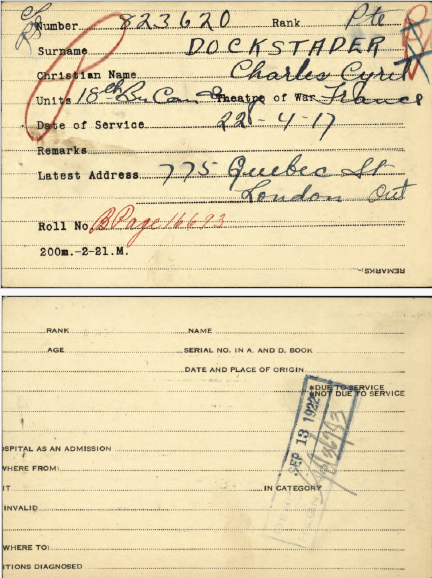 Number 823620 Rank Pte
Surname DOCKSTADER
Christian Name Charles Cyril
Units 18th Bn Can Theatre of War France
Date of Service 22-4-17
Remarks
Latest Address 775 Quebec St
London Ont
Roll No. B Page 16693
200m.-2-21.M.
REMARKS:
RANK NAME
AGE SERIAL NO. IN A. AND D. BOOK
DATE AND PLACE OF ORIGIN
*DUE TO SERVICE
*NOT DUE TO SERVICE
SEP 13 1922
OSPITAL AS AN ADMISSION
WHERE FROM)
IT IN CATEGORY
INVALID
WHERE TO)
ITIONS DIAGNOSED